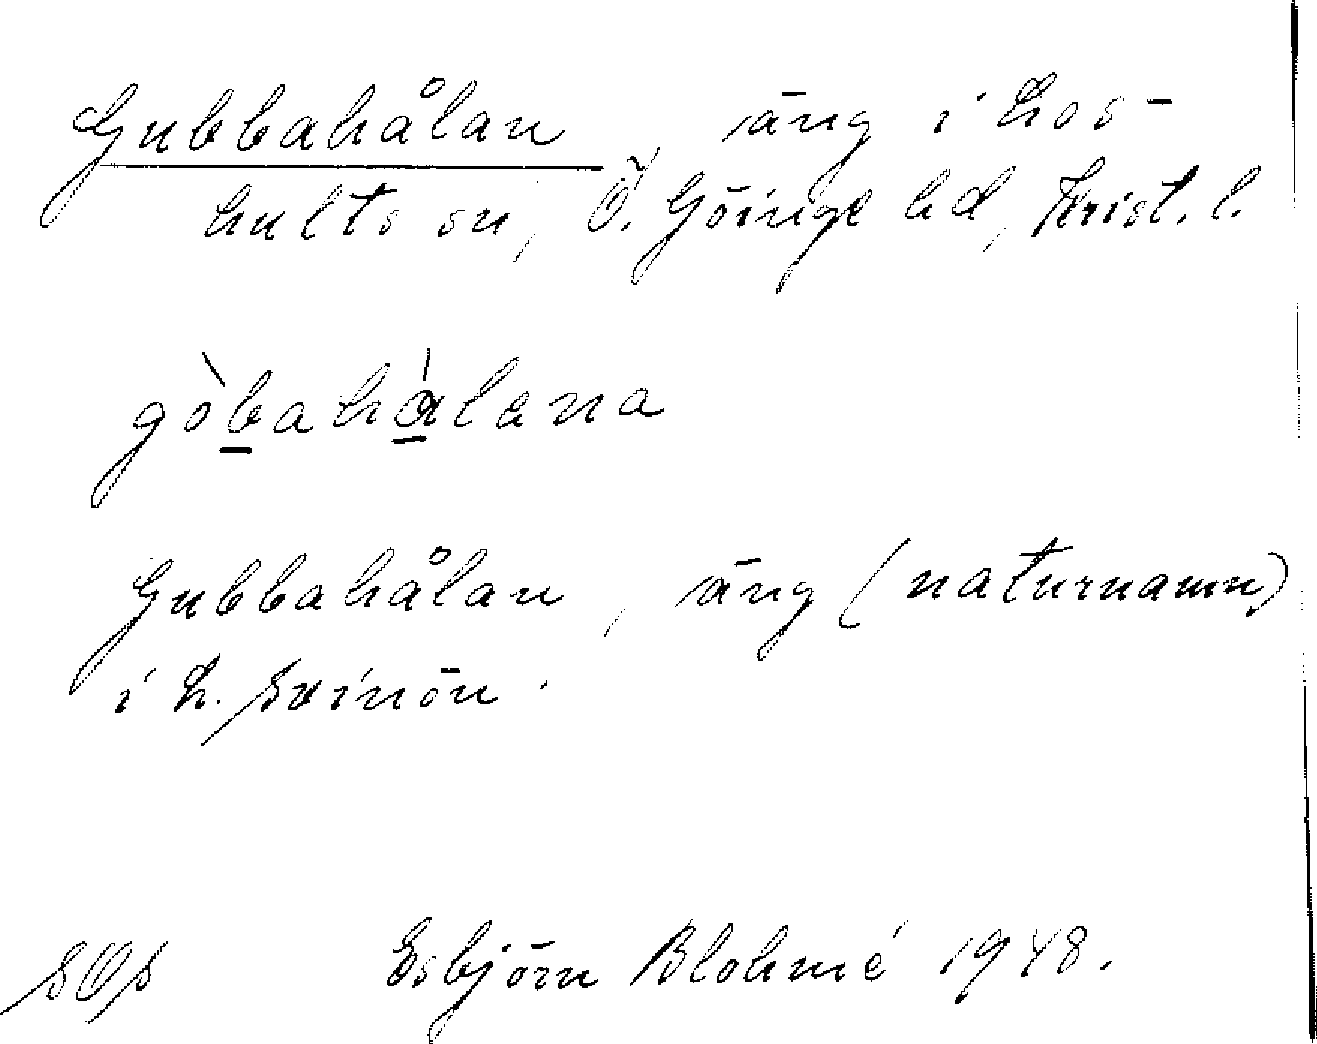 Gubbahålan, äng i Los-
hults sn, Ö. Göinge hd, Krist. l.
gòbahàlena
Gubbahålan, äng (naturnamn)
i L. Svinön.
Esbjörn Blohmé 1948.